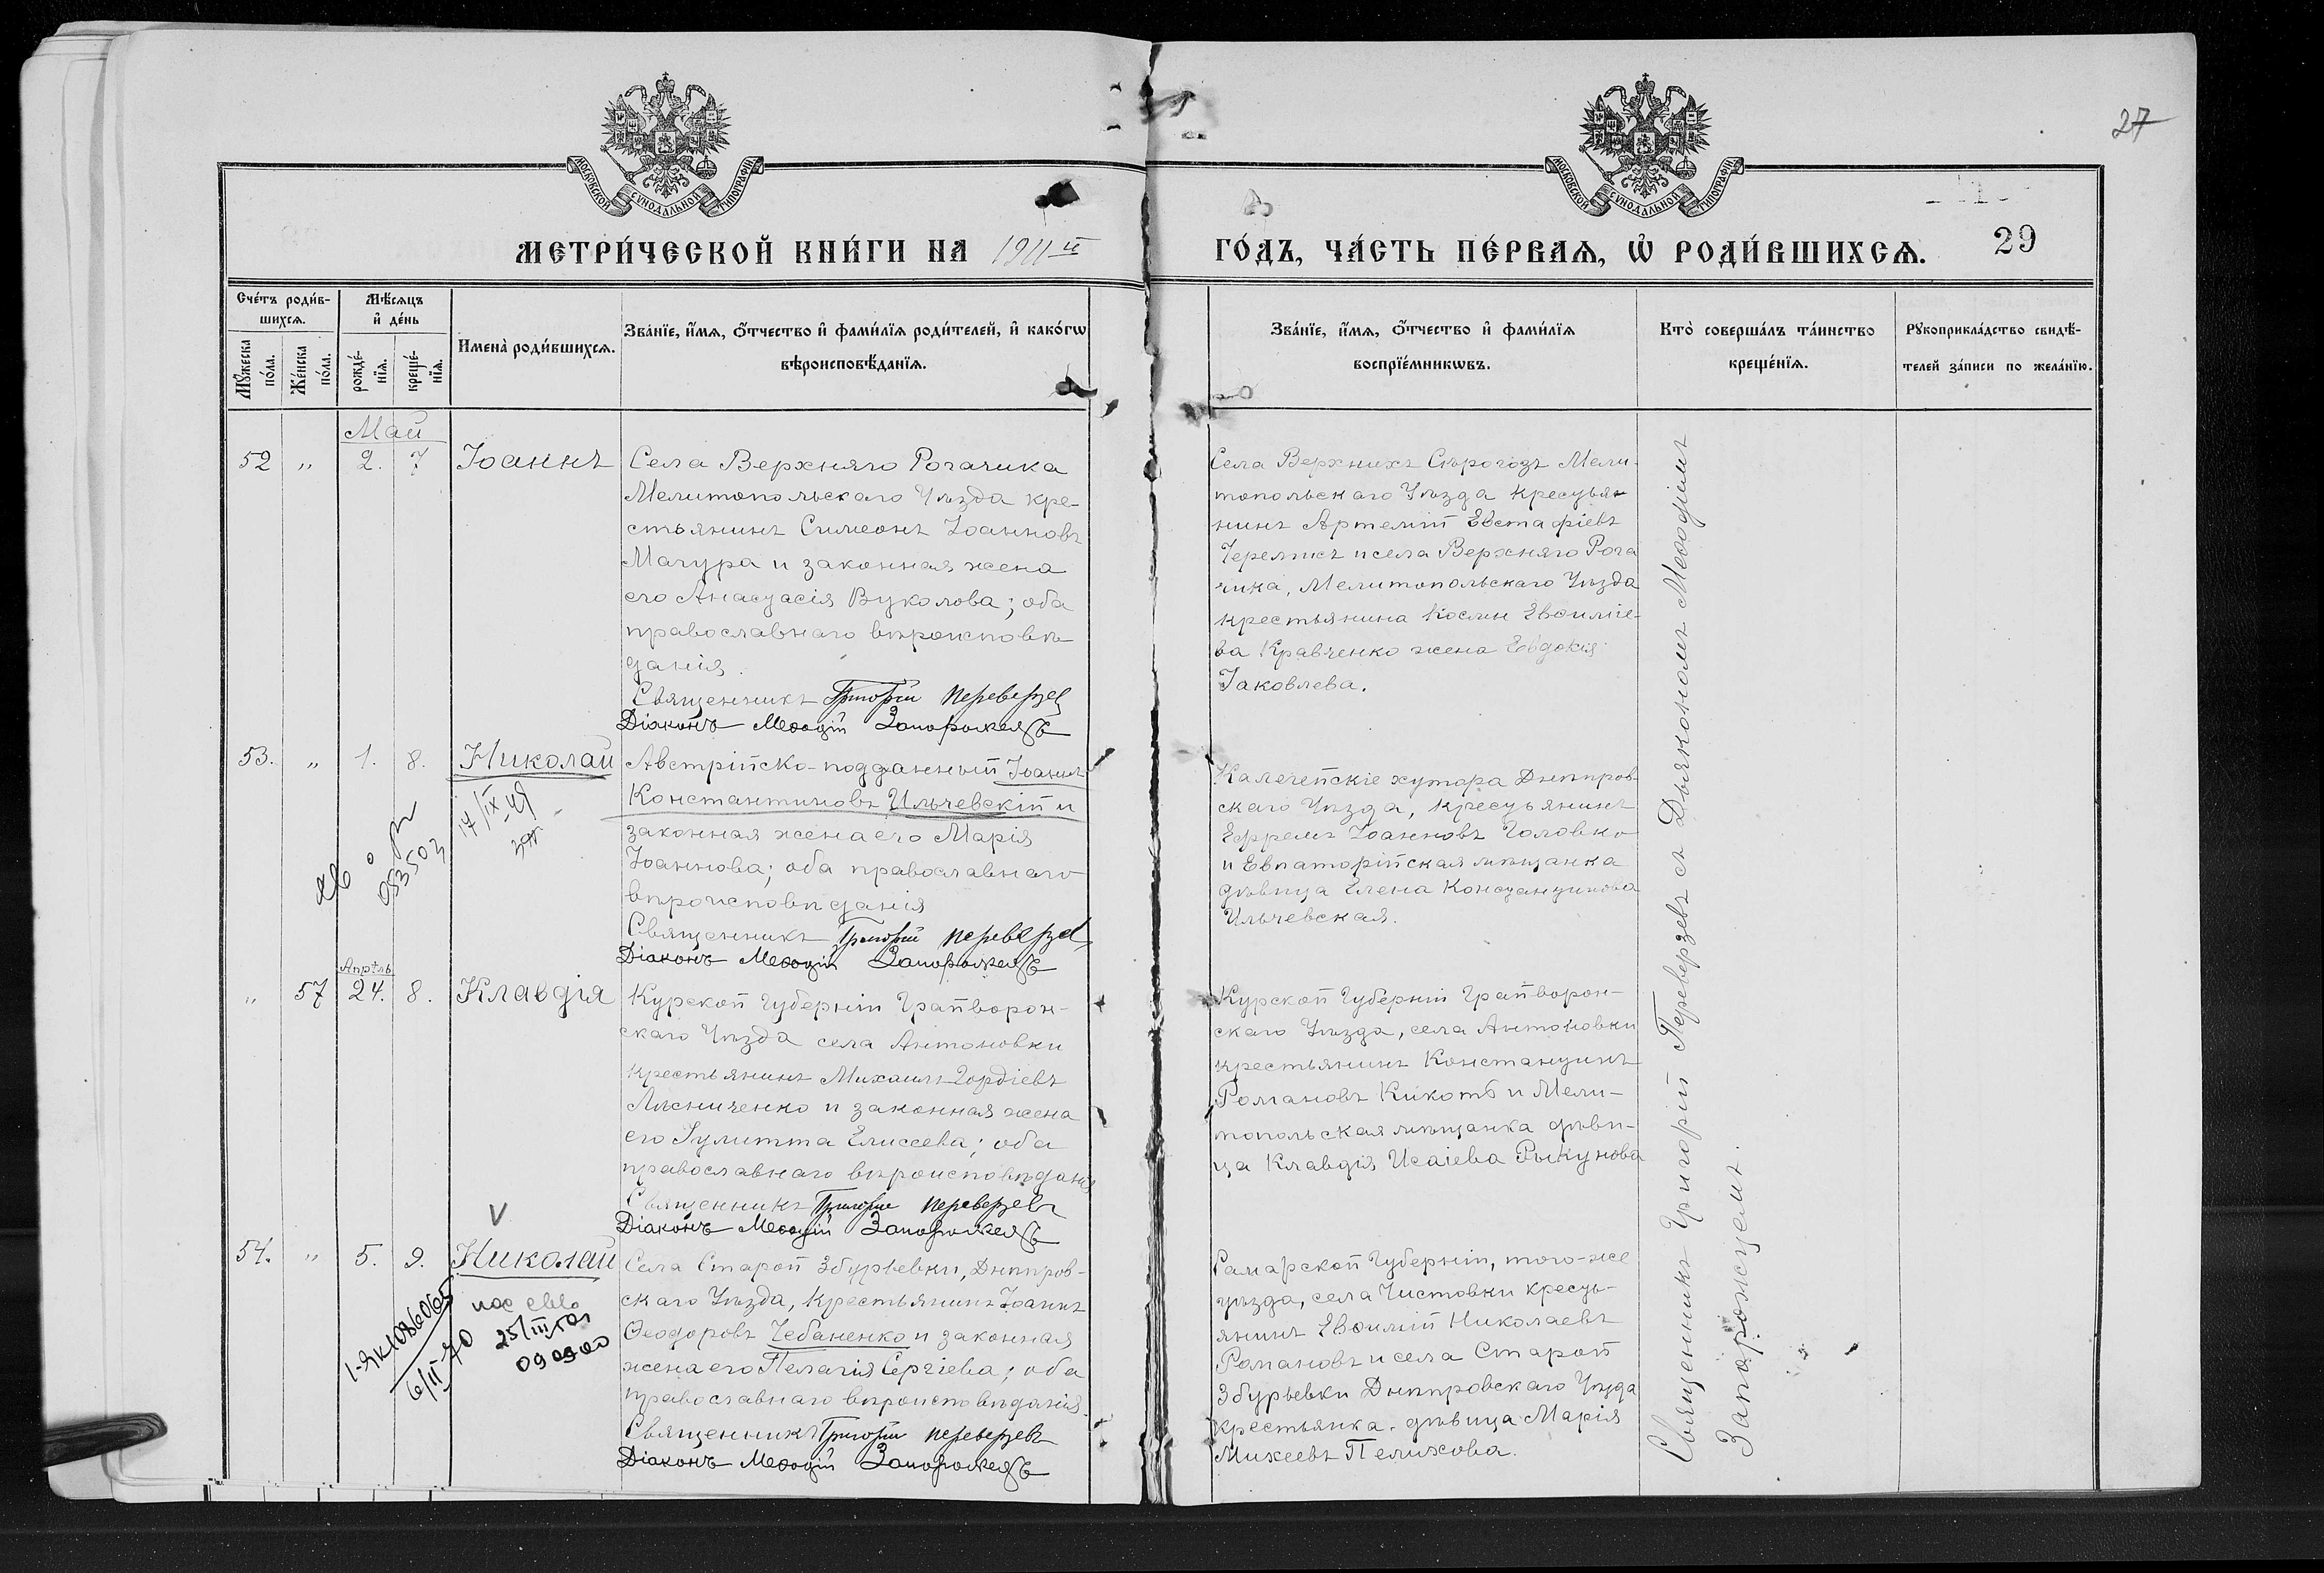 27
МОСКОВСКОЙ СУНОДАЛЬНОЙ ТИПОГРАФІИ
МОСКОВСКОЙ СУНОДАЛЬНОЙ ТИПОГРАФІИ
МЕТРИ́ЧЕСКОЙ КНИ́ГИ НА 1911й
ГО́ДЪ, ЧА́СТЬ ПЕ́РВАЯ, Ѡ҆ РОДИ́ВШИХСЯ.
29
Сче́тъ роди́вшихся.
Мꙋ́жеска по́ла.
Же́нска по́ла.
Мѣ́сяцъ и҆ де́нь
рожде́нїя.
креще́нїя.
Имена̀ роди́вшихся.
Зва́нїе, и҆́мя, ѻ҆́тчество и҆ фами́лїя роди́телей, и҆ како́гѡ
вѣроисповѣ́данїя.
Зва́нїе, и҆́мя, ѻ҆́тчество и҆ фами́лїя
воспрїе́мникѡвъ.
Кто̀ соверша́лъ та́инство
креще́нїя.
Рꙋкоприкла́дство свидѣ́-
телей за́писи по жела́нїю.
Май
52 " 2. 7 Іоаннъ
Села Верхняго Рогачика
Мелитопольскаго Уѣзда кре-
стьянинъ Симеонъ Іоанновъ
Мачура и законная жена
его Анастасія Вуколова; оба
православнаго вѣроисповѣ
данія.
Священникъ Григорій Переверзев
Діаконъ Меѳодій Запорожецъ
Села Верхнихъ Сѣрогозъ Мели-
топольскаго Уѣзда крестья
нинъ Артемій Евстафіевъ
и села Верхняго Рога
чика, Мелитопольскаго Уѣзда
крестьянина Космы Евѳиміе-
ва Кравченко жена Евдокія
Іаковлева.
53. " 1. 8. Николай
Австрійско-подданный Іоаннъ
Константиновъ Ильчевскій и
законная жена его Марія
Іоаннова; оба православнаго
вѣроисповѣданія
Священникъ Григорій Переверзев
Діаконъ Меѳодій Запорожецъ
Калечейскіе хутора Днѣпров
скаго Уѣзда, крестьянинъ
Ефремъ Іоанновъ Головко
и Евпаторійская мѣщанка
дѣвица Елена Константинова
Ильчевская.
17/IX-49
053503
Апрѣль
" 57 24. 8. Клавдія
Курской Губерніи Грайворон-
скаго Уѣзда села Антоновки
крестьянинъ Михаилъ Гордіевъ
Лѣсниченко и законная жена
его Іулитта Елисеева; оба
православнаго вѣроисповѣданія
Священникъ Григорій Переверзевъ
Діаконъ Меѳодій Запорожецъ
Курской Губерніи Грайворон-
скаго Уѣзда, села Антоновки
крестьянинъ Константинъ
Романовъ Кикоть и Мели-
топольская мѣщанка дѣви-
ца Клавдія Исаіева Рыкунова
V
54. " 5. 9. Николай
Села Старой Збурьевки, Днѣпров-
скаго Уѣзда, крестьянинъ Іоаннъ
Ѳеодоровъ Чебаненко и законная
жена его Пелагія Сергіева; оба
православнаго вѣроисповѣданія.
Священникъ Григорій Переверзевъ
Діаконъ Меѳодій Запорожецъ
Самарской Губерніи, того-же
уѣзда, села Чистовки кресть-
янинъ Евѳимій Николаевъ
Романовъ и села Старой
Збурьевки Днѣпровскаго Уѣзда
крестьянка-дѣвица Марія
Михеевъ Пелихова.
6/II 70
Священникъ Григорій Переверзевъ съ Дьякономъ Меѳодіемъ
Запорожцемъ.